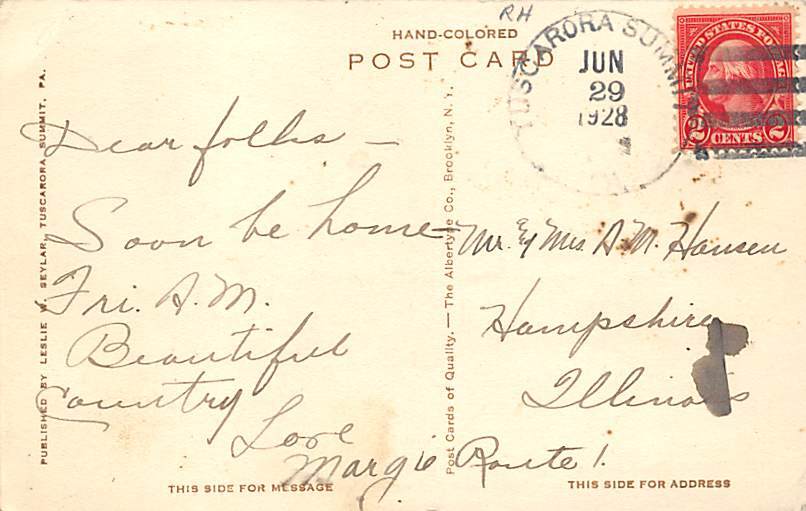 RH
HAND-COLORED
POST CARD
TUSCARORA SUMMIT
JUN
29
1928
UNITED STATES POSTAGE
2 CENTS 2
PUBLISHED BY LESLIE W. SEYLAR, TUSCARORA SUMMIT, PA.
Dear folks —
Soon be home
Fri. A.M.
Beautiful
Country
Love
Margie
Post Cards of Quality. — The Albertype Co., Brooklyn, N. Y.
Mr. & Mrs A.M. Hansen
Hampshire
Illinois
Route 1.
THIS SIDE FOR MESSAGE
THIS SIDE FOR ADDRESS